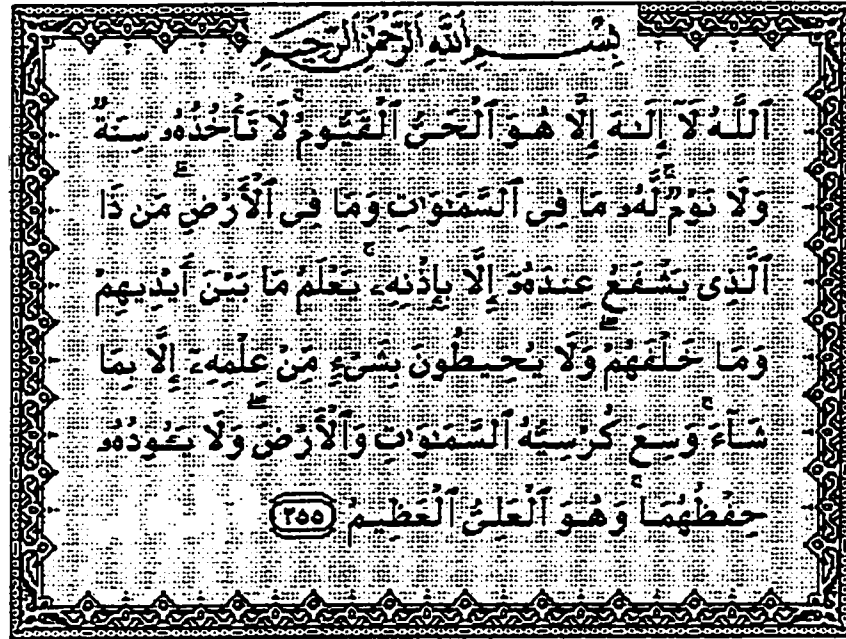 بِسْمِ ٱللَّهِ ٱلرَّحْمَٰنِ ٱلرَّحِيمِ
ٱللَّهُ لَآ إِلَٰهَ إِلَّا هُوَ ٱلْحَىُّ ٱلْقَيُّومُ ۚ لَا تَأْخُذُهُۥ سِنَةٌ
وَلَا نَوْمٌ ۚ لَّهُۥ مَا فِى ٱلسَّمَٰوَٰتِ وَمَا فِى ٱلْأَرْضِ ۗ مَن ذَا
ٱلَّذِى يَشْفَعُ عِندَهُۥٓ إِلَّا بِإِذْنِهِۦ ۚ يَعْلَمُ مَا بَيْنَ أَيْدِيهِمْ
وَمَا خَلْفَهُمْ ۖ وَلَا يُحِيطُونَ بِشَىْءٍ مِّنْ عِلْمِهِۦٓ إِلَّا بِمَا
شَآءَ ۚ وَسِعَ كُرْسِيُّهُ ٱلسَّمَٰوَٰتِ وَٱلْأَرْضَ ۖ وَلَا يَـُٔودُهُۥ
حِفْظُهُمَا ۚ وَهُوَ ٱلْعَلِىُّ ٱلْعَظِيمُ ٢٥٥